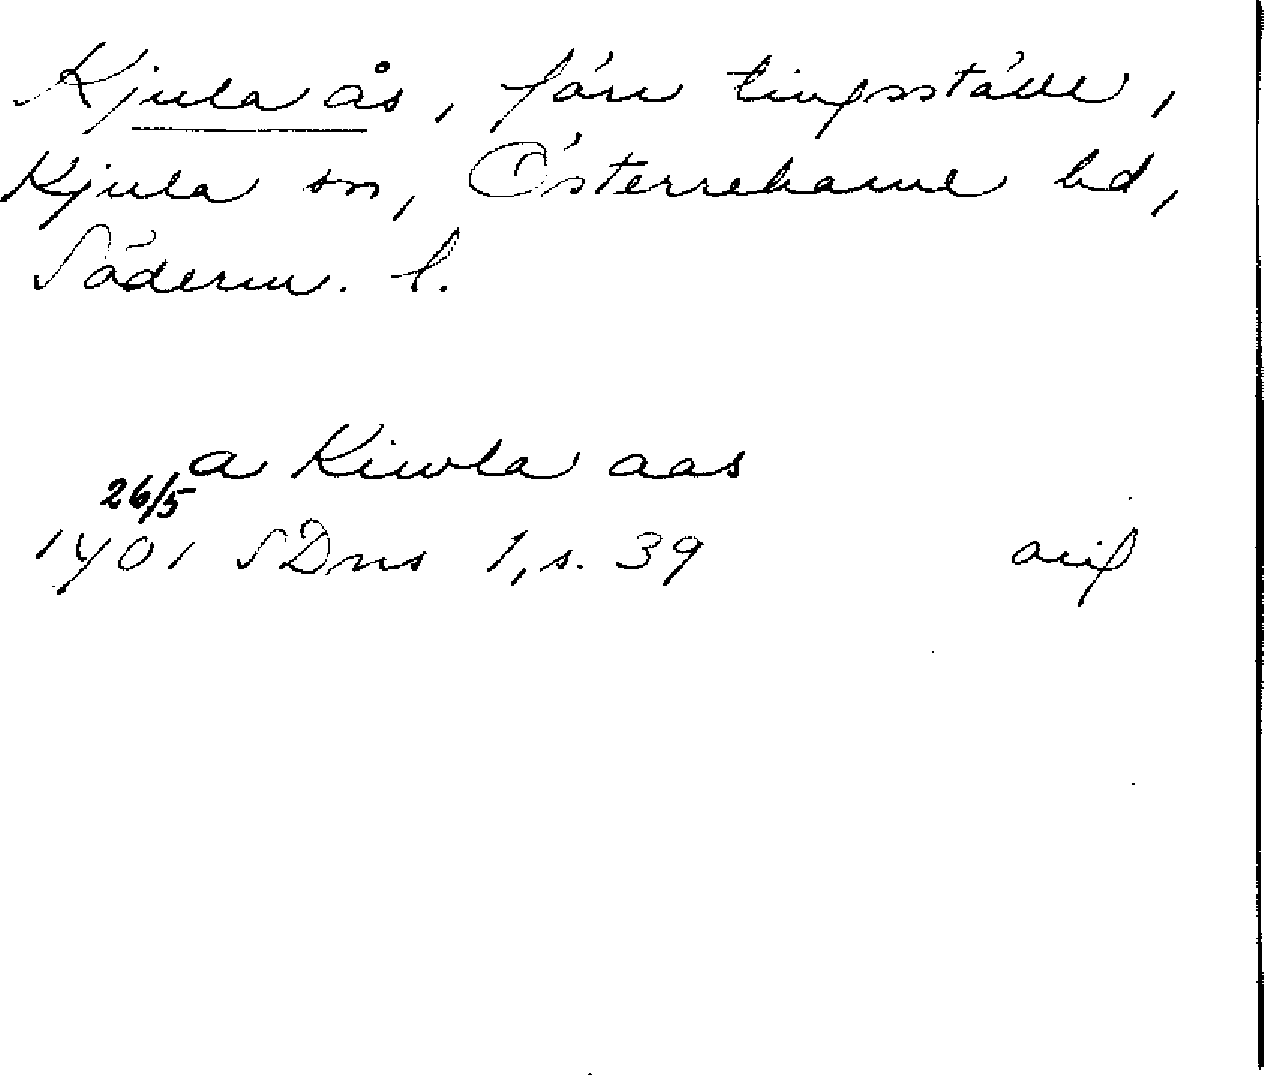 Kjula ås, förr tingsställe,
Kjula sn, Österrekarne hd,
Söderm. l.
a Kiwla aas
26/5
1401 SDns 1, s. 39 orig